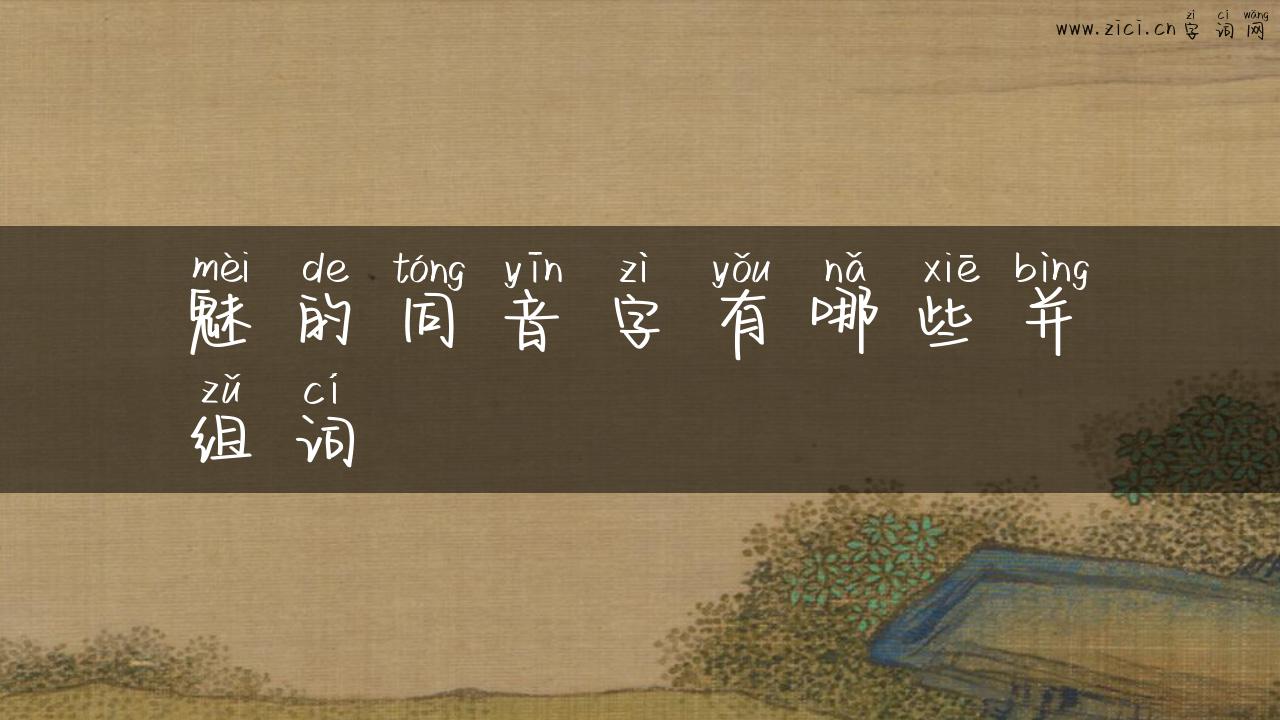 zì cí wǎng
www.zici.cn 字 词 网
mèi de tóng yīn zì yǒu nǎ xiē bìng
魅 的 同 音 字 有 哪 些 并
zǔ cí
组 词